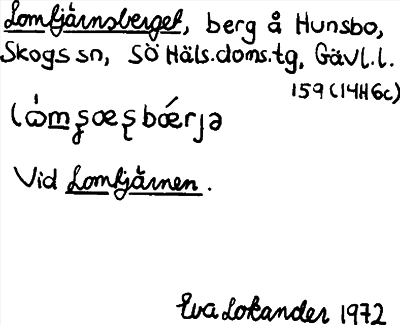 Lomtjärnsberget, berg å Hunsbo,
Skogs sn, SÖ Häls. doms. tg, Gävl. l.
159 (14H6c)
Vid Lomtjärnen.
Eva Lokander 1972